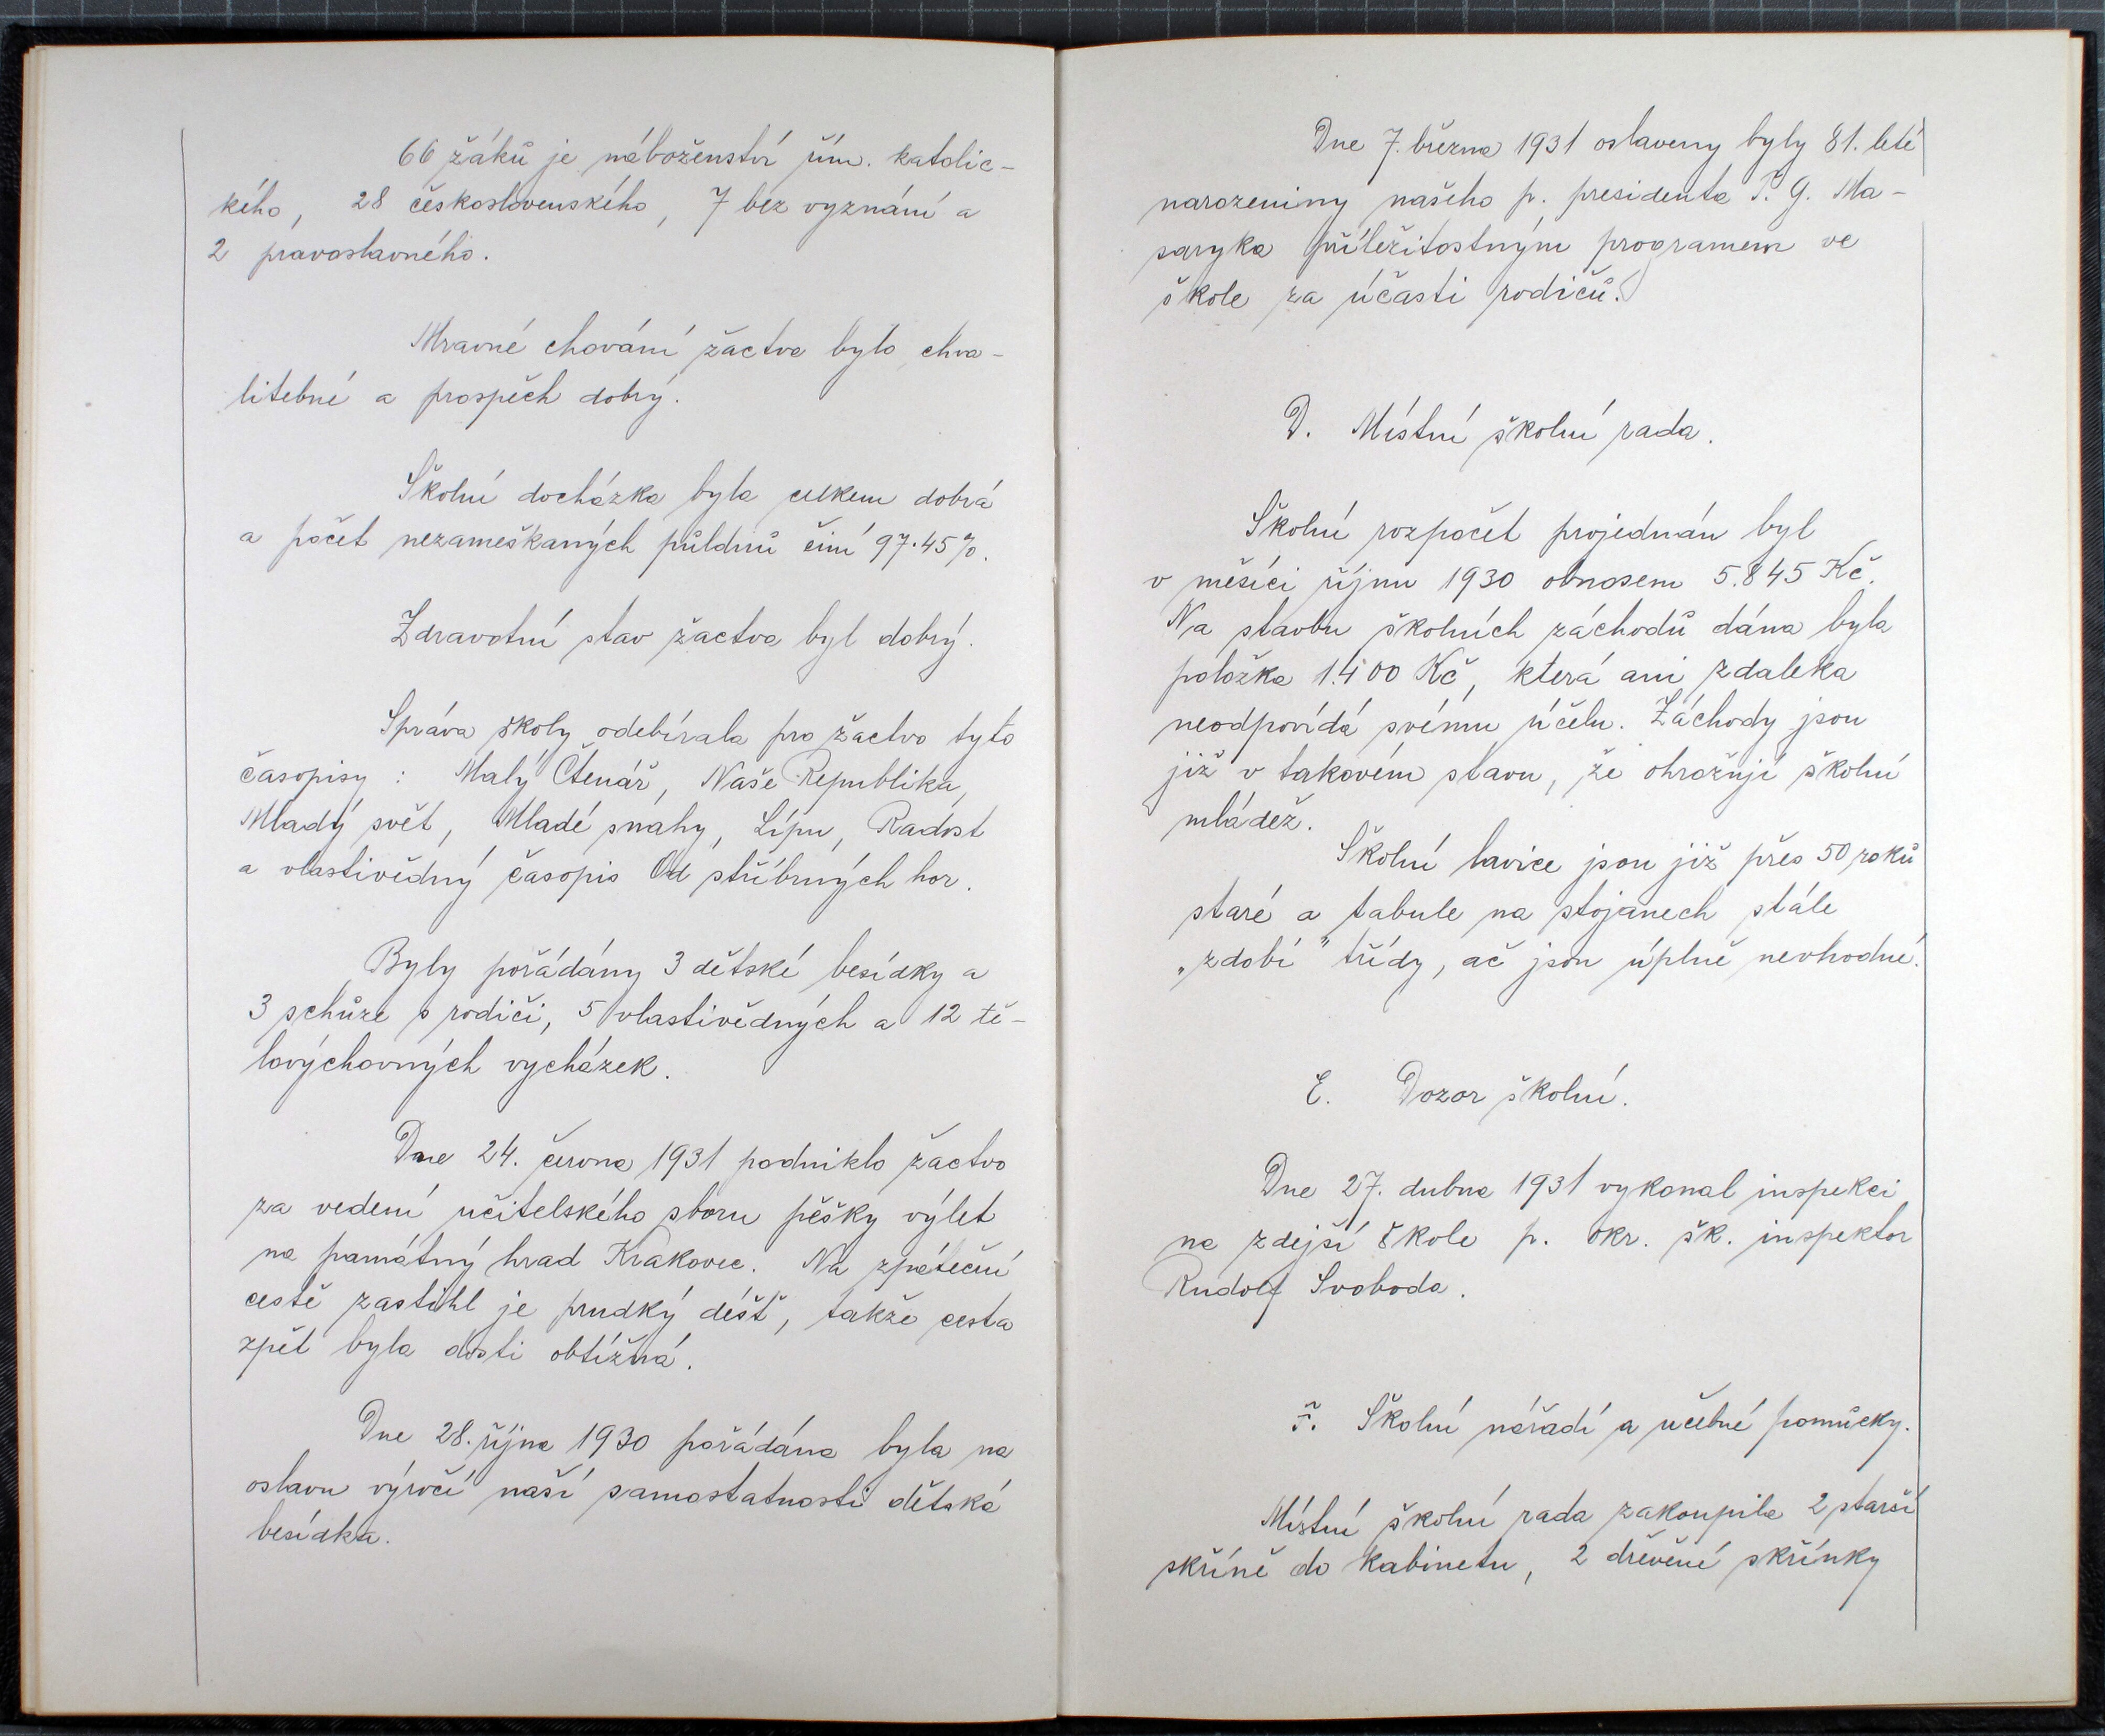 66 žáků je náboženství řím. katolic-
kého, 28 československého, 7 bez vyznání a
2 pravoslavného.
Mravné chování žactva bylo chva-
litebné a prospěch dobrý.
Školní docházka byla celkem dobrá
a počet nezameškaných půldnů činí 97.45%.
Zdravotní stav žactva byl dobrý.
Správa školy odebírala pro žactvo tyto
časopisy: Malý Čtenář, Naše Republika,
Mladý svět, Mladé snahy, Lípu, Radost
a vlastivědný časopis Od stříbrných hor.
Byly pořádány 3 dětské besídky a
3 schůze s rodiči, 5 vlastivědných a 12 tě-
lovýchovných vycházek.
Dne 24. června 1931 podniklo žactvo
za vedení učitelského sboru pěšky výlet
na památný hrad Krakovec. Na zpáteční
cestě zastihl je prudký déšť, takže cesta
zpět byla dosti obtížná.
Dne 28. října 1930 pořádána byla na
oslavu výročí naší samostatnosti dětská
besídka.
Dne 7. března 1931 oslaveny byly 81. leté
narozeniny našeho p. presidenta T. G. Ma-
saryka příležitostným programem ve
škole za účasti rodičů.
D. Místní školní rada.
Školní rozpočet projednán byl
v měsíci říjnu 1930 obnosem 5.845 Kč.
Na stavbu školních záchodů dána byla
položka 1.400 Kč, která ani zdaleka
neodpovídá svému účelu. Záchody jsou
již v takovém stavu, že ohrožují školní
mládež.
Školní lavice jsou již přes 50 roků
staré a tabule na stojanech stále
„zdobí" třídy, ač jsou úplně nevhodné.
E. Dozor školní.
Dne 27. dubna 1931 vykonal inspekci
na zdejší škole p. okr. šk. inspektor
Rudolf Svoboda.
F. Školní nářadí a učebné pomůcky.
Místní školní rada zakoupila 2 starší
skříně do kabinetu, 2 dřevěné skřínky